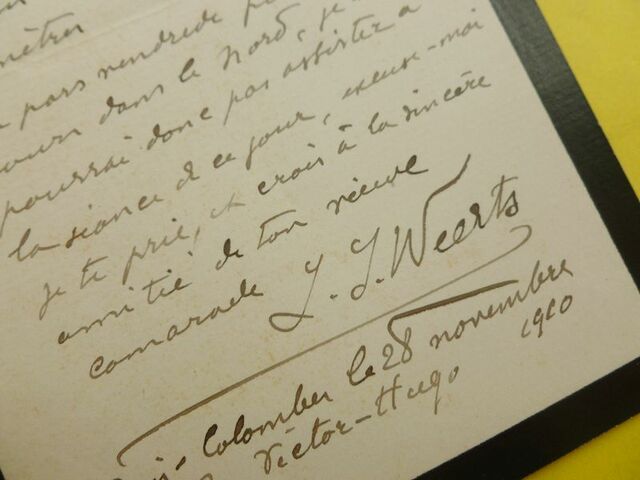 mètres
pars vendredi
dans le Nord, je
pourrai donc pas assister à
la séance de ce jour, excuse-moi
je te prie, et crois à la sincère
amitié de ton vieux
camarade J. J. Weerts
Colombes le 28 novembre
Victor-Hugo 1910